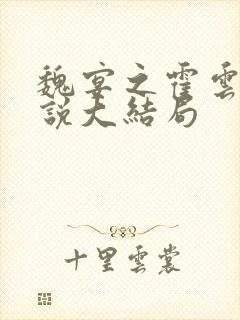 魏宴之霍雲
說大結局
十里雲裳